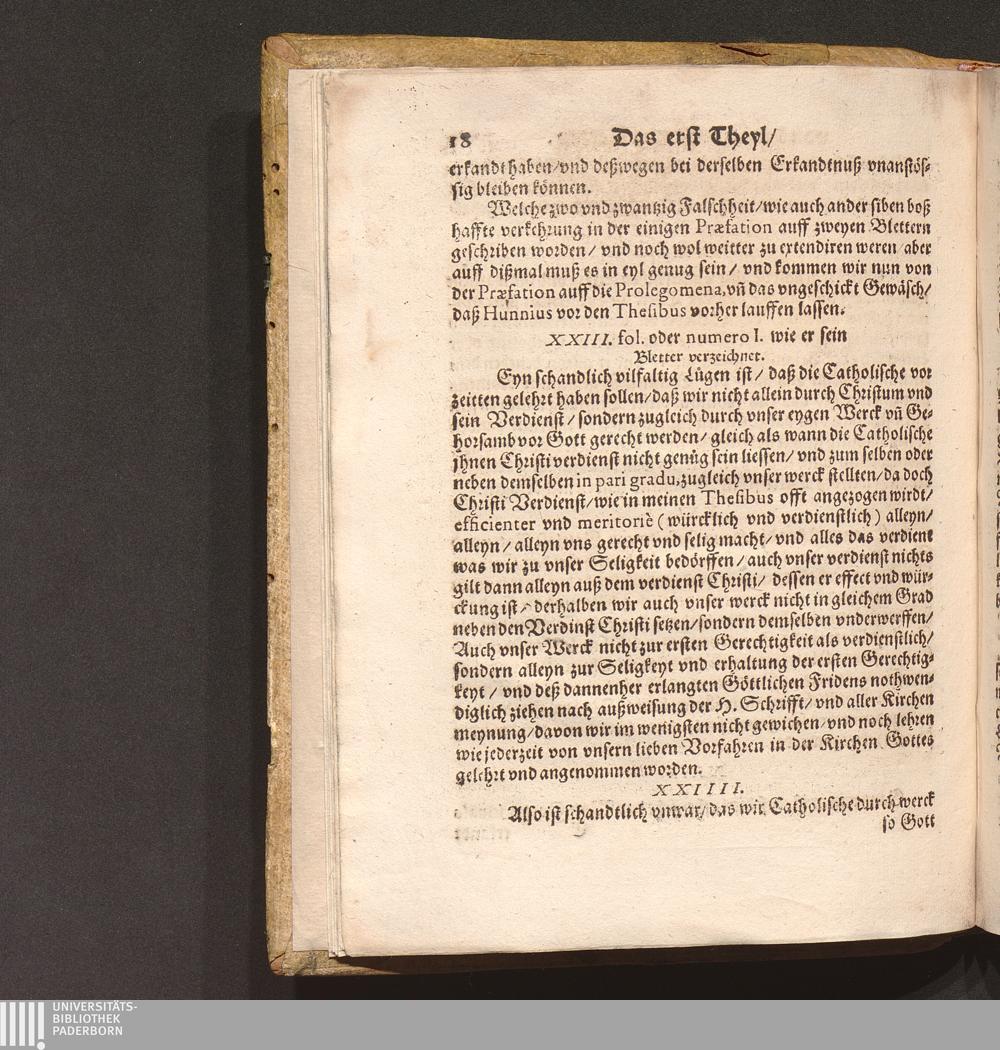 18 Das erst Theyl/
erkandt haben/vnd deßwegen bei derselben Erkandtnuß vnanstös-
sig bleiben können.
Welche zwo vnd zwantzig Falschheit/wie auch ander siben boß
haffte verkehrung in der einigen Præfation auff zweyen Blettern
geschriben worden/ vnd noch wol weitter zu extendiren weren/ aber
auff dißmal muß es in eyl genug sein/ vnd kommen wir nun von
der Præfation auff die Prolegomena, vñ das vngeschickt Gewäsch/
daß Hunnius vor den Thesibus vorher lauffen lassen.
XXIII. fol. oder numero I. wie er sein
Bletter verzeichnet.
Eyn schandlich vilfaltig Lügen ist/ daß die Catholische vor
zeitten gelehrt haben sollen/daß wir nicht allein durch Christum vnd
sein Verdienst/sondern zugleich durch vnser eygen Werck vñ Ge-
horsamb vor Gott gerecht werden/ gleich als wann die Catholische
jhnen Christi verdienst nicht genůg sein liessen/ vnd zum selben oder
neben demselben in pari gradu, zugleich vnser werck stellten/da doch
Christi Verdienst/wie in meinen Thesibus offt angezogen wirdt/
efficienter vnd meritoriè (würcklich vnd verdienstlich) alleyn/
alleyn/ alleyn vns gerecht vnd selig macht/ vnd alles das verdient
was wir zu vnser Seligkeit bedörffen/ auch vnser verdienst nichts
gilt dann alleyn auß dem verdienst Christi/ dessen er effect vnd wür-
ckung ist/ derhalben wir auch vnser werck nicht in gleichem Grad
neben den Verdinst Christi setzen/sondern demselben vnderwerffen/
Auch vnser Werck nicht zur ersten Gerechtigkeit als verdienstlich/
sondern alleyn zur Seligkeyt vnd erhaltung der ersten Gerechtig-
keyt/ vnd deß dannenher erlangten Göttlichen Fridens nothwen-
diglich ziehen nach außweisung der H. Schrifft/ vnd aller Kirchen
meynung/davon wir im wenigsten nicht gewichen/ vnd noch lehren
wie jederzeit von vnsern lieben Vorfahren in der Kirchen Gottes
gelehrt vnd angenommen worden.
XXIIII.
Also ist schandtlich vnwar/ das wir Catholische durch werck
so Gott
UNIVERSITÄTS-
BIBLIOTHEK
PADERBORN